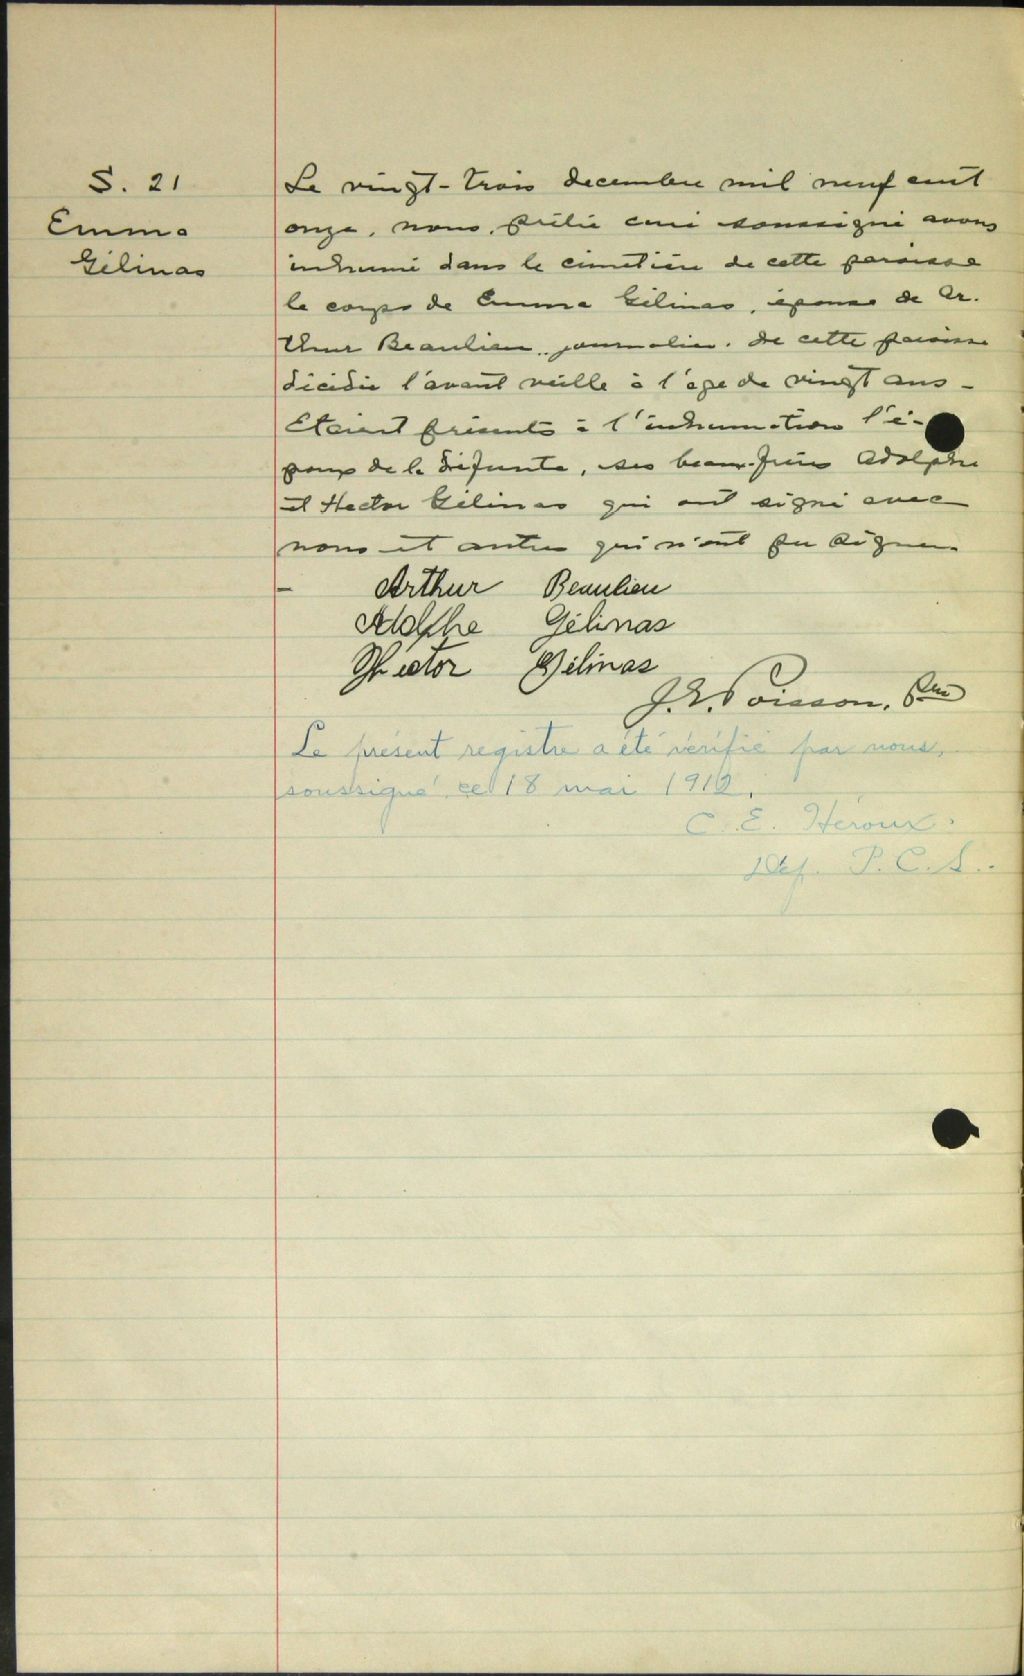 S. 21
Emma
Gélinas
Le vingt-trois decembre mil neuf cent
onze, nous, prêtre curé soussigné avons
inhumé dans le cimetière de cette paroisse
le corps de Emma Gélinas, épouse de Ar-
thur Beaulieu, journalier, de cette paroisse
décédée l'avant veille à l'age de vingt ans -
Etaient présents à l'inhumation l'é-
poux de la défunte, ses beaux-frères Adolphe
et Hector Gélinas qui ont signé avec
nous et autres qui n'ont pu signer.
Arthur Beaulieu
Adolphe Gélinas
Hector Gélinas
J. E. Poisson, Ptre
Le présent registre a été vérifié par nous,
soussigné ce 18 mai 1912.
C. E. Héroux.
Dép. P. C. S.